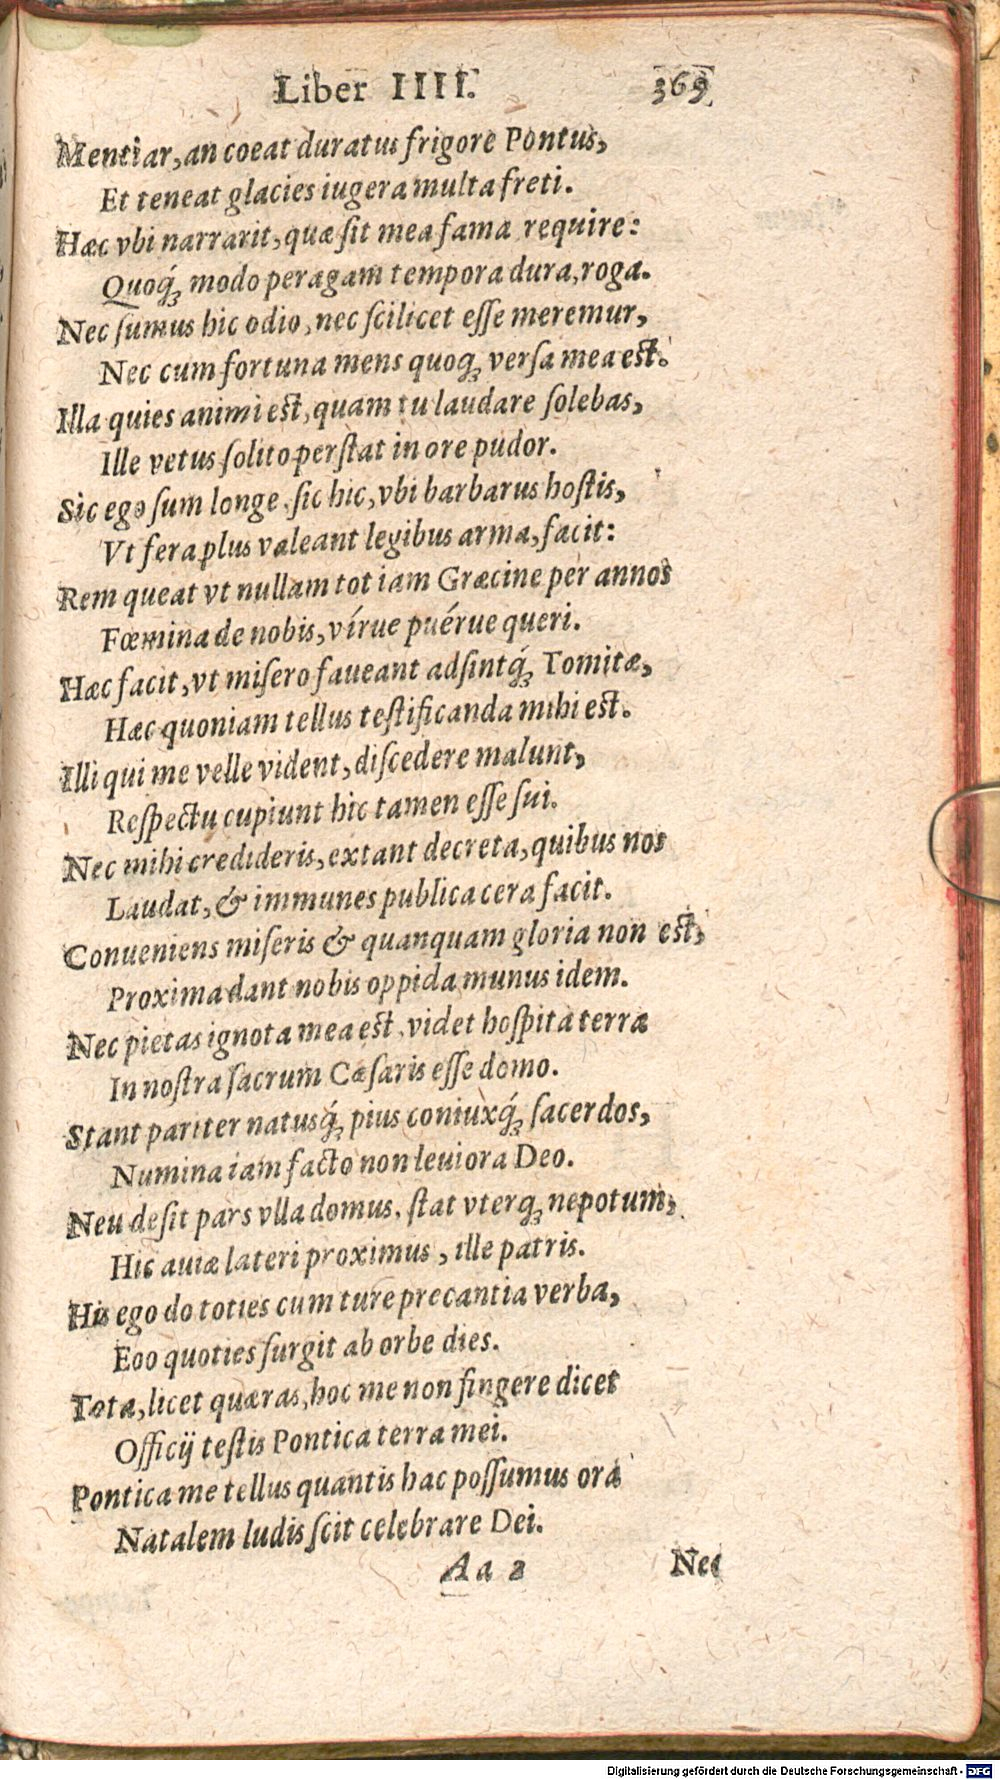 Liber IIII. 369
Mentiar, an coeat duratus frigore Pontus,
Et teneat glacies iugera multa freti.
Hæc vbi narrarit, quæ ſit mea fama require:
Quoq́ꝫ modo peragam tempora dura, roga.
Nec ſumus hic odio, nec ſcilicet eſſe meremur,
Nec cum fortuna mens quoqꝫ verſa mea est.
Illa quies animi est, quam tu laudare ſolebas,
Ille vetus ſolito perſtat in ore pudor.
Sic ego ſum longe, ſic hic, vbi barbarus hoſtis,
Vt fera plus valeant legibus arma, facit:
Rem queat vt nullam tot iam Græcine per annos
Fœmina de nobis, vírue puérue queri.
Hæc facit, vt miſero faueant adſintq́ꝫ Tomitæ,
Hæc quoniam tellus teſtificanda mihi est.
Illi qui me velle vident, diſcedere malunt,
Reſpectu cupiunt hic tamen eſſe ſui.
Nec mihi credideris, extant decreta, quibus nos
Laudat, & immunes publica cera facit.
Conueniens miſeris & quanquam gloria non est,
Proxima dant nobis oppida munus idem.
Nec pietas ignota mea est, videt hoſpita terra
In noſtra ſacrum Cæſaris eſſe domo.
Stant pariter natusq́ꝫ pius coniuxq́ꝫ ſacerdos,
Numina iam facto non leuiora Deo.
Neu deſit pars vlla domus, ſtat vterqꝫ nepotum,
Hic auiæ lateri proximus, ille patris.
His ego do toties cum ture precantia verba,
Eoo quoties ſurgit ab orbe dies.
Tota, licet quæras, hoc me non fingere dicet
Officij teſtis Pontica terra mei.
Pontica me tellus quantis hac poſſumus ora
Natalem ludis ſcit celebrare Dei.
Aa 2 Nec
Digitalisierung gefördert durch die Deutsche Forschungsgemeinschaft - DFG